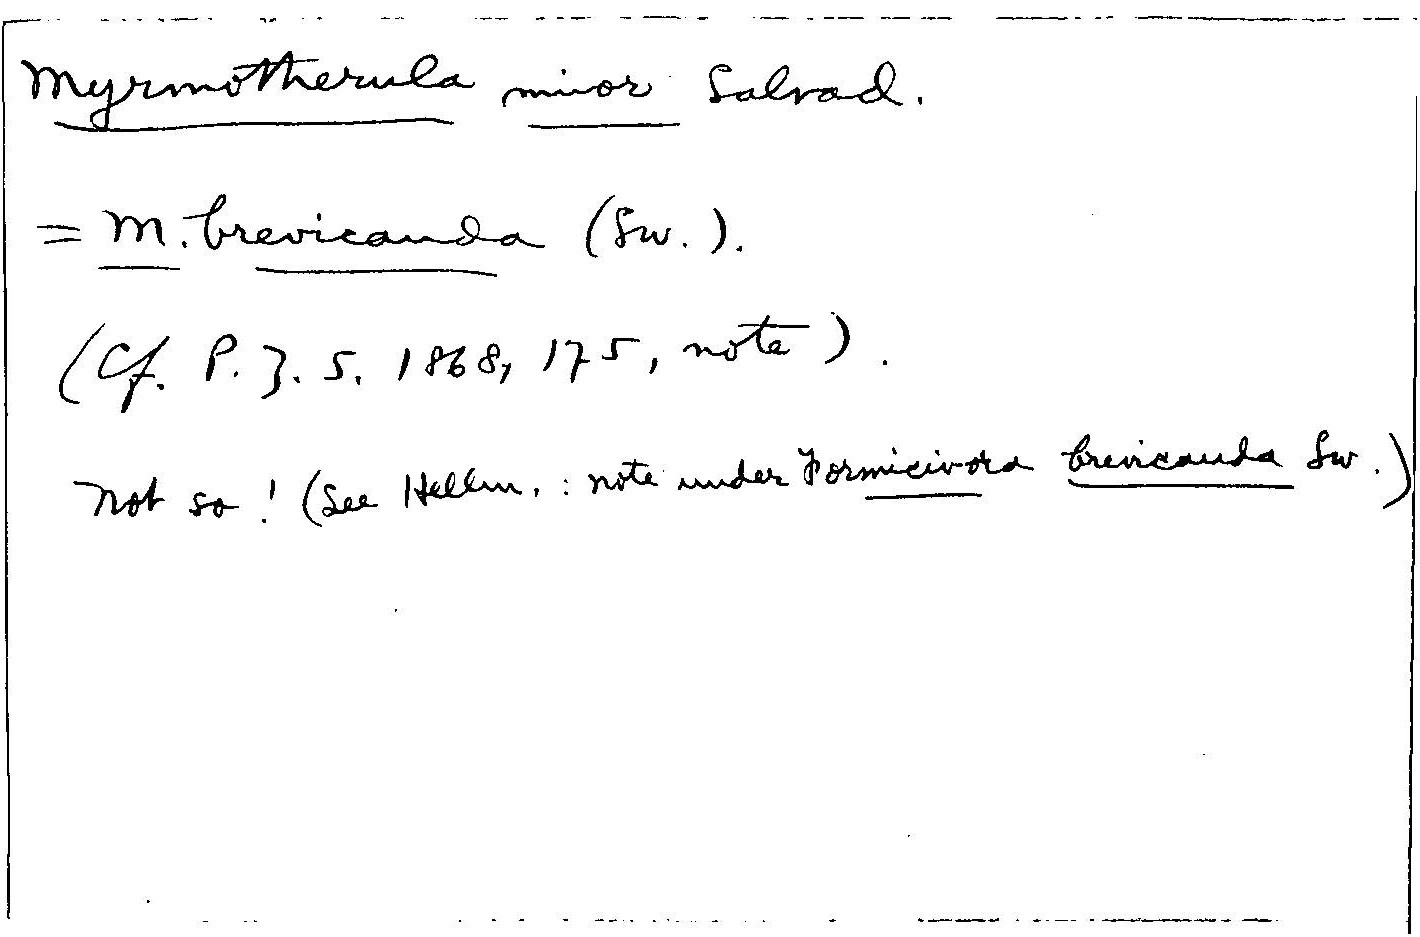 Myrmotherula minor Salvad.
= M. brevicauda (Sw.).
(Cf. P. Z. S. 1868, 175, note).
Not so! (See Hellm. : note under Formicivora brevicauda Sw.)